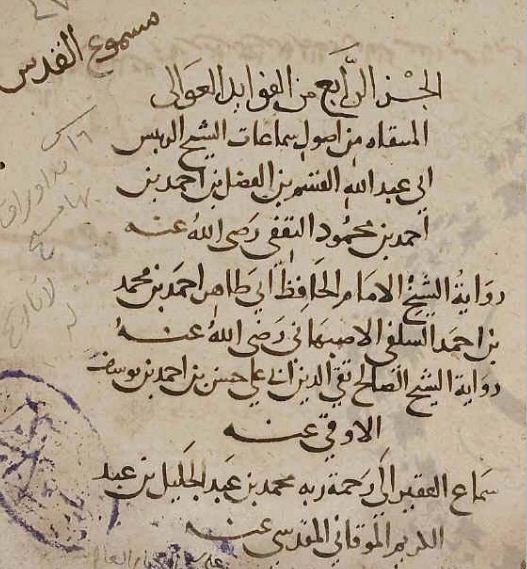 مسموع القدس
الجزء الرَّابع من الفوايد العوالى
المنتقاه من اصول سماعات الشيخ الريس
ابي عبد الله القسم بن الفضل بن احمد بن
احمد بن محمود الثقفى رَضى اللهُ عنه
روايةُ الشيخ الامام الحافظ ابي طاهر احمد بن محمد
بن احمد السلفى الاصبهاني رَضى اللهُ عنهُ
رواية الشيخ الصالح تقي الدين ابي علي حسن بن احمد بن يوسف
الاوقي عنه
سماع الفقير الي رَحمة ربه محمد بن عبد الجليل بن عبد
الكريم الموقاني المقدسي عنه